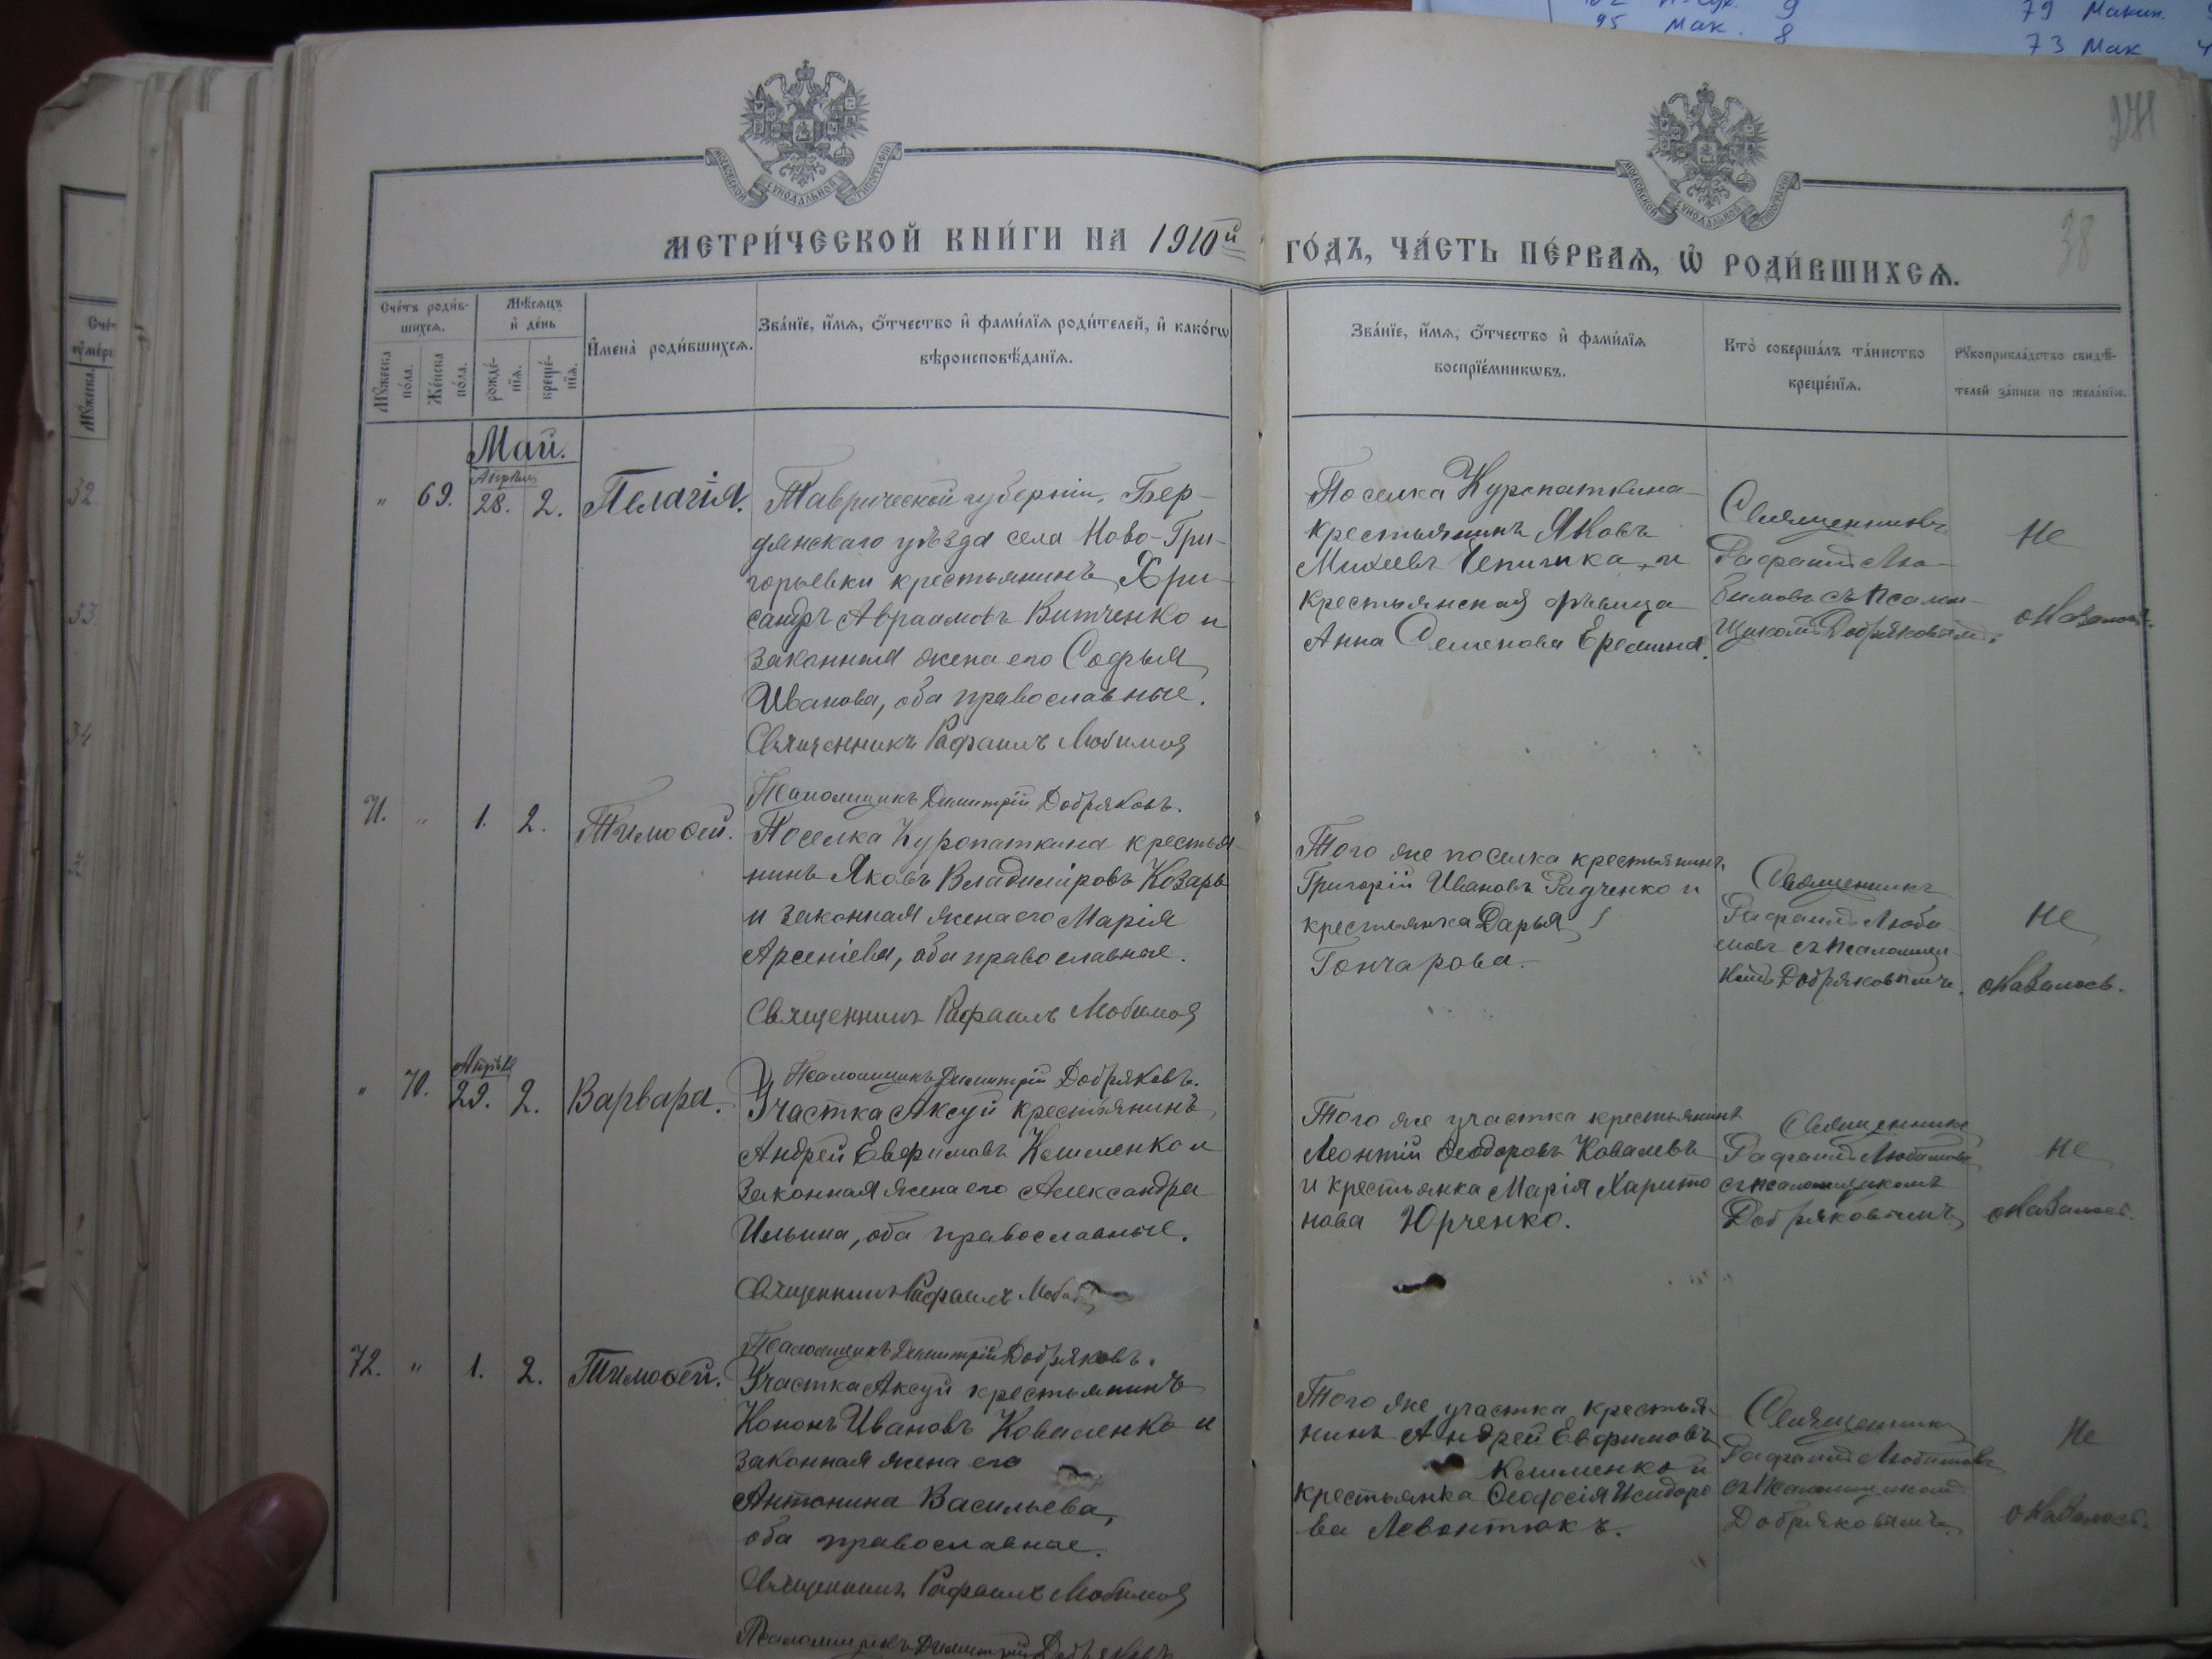 95 Мак. 8
79 Макин.
73 Мак 4
271
38
МОСКОВСКОЙ СѴНОДАЛЬНОЙ ТИПОГРАФІИ
МОСКОВСКОЙ СѴНОДАЛЬНОЙ ТИПОГРАФІИ
МЕТРИ́ЧЕСКОЙ КНИ́ГИ НА 1910й ГО́ДЪ, ЧА́СТЬ ПЕ́РВАЯ, Ѿ РОДИ́ВШИХСЯ.
Сче́тъ роди́в-
шихся.
Мꙋжеска по́ла.
Же́нска по́ла.
Мѣсяцъ
и҆ де́нь
рожде́-
нїя.
креще́-
нїя.
И҆мена̀ роди́вшихся.
Зва́нїе, и҆́мя, ѻ҆́тчество и҆ фами́лїя роди́телей, и҆ како́гѡ
вѣроисповѣ́данїя.
Зва́нїе, и҆́мя, ѻ҆́тчество и҆ фами́лїя
воспрїе́мникѡвъ.
Кто̀ соверша́лъ та́инство
креще́нїя.
Рꙋкоприкла́дство свидѣ́-
телей за́писи по жела́нїю.
Май.
Апрѣль
" 69. 28. 2. Пелагія.
Таврической губерніи, Бер-
дянскаго уѣзда села Ново-Гри-
горьевки крестьянинъ Хри-
сандръ Авраамовъ Витченко и
законная жена его Софья
Иванова, оба православные.
Священникъ Рафаилъ Любимов
Псаломщикъ Димитрій Добряковъ.
Поселка Куропаткина
крестьянинъ Яковъ
Михеевъ Чепишка, и
крестьянская дѣвица
Анна Семенова Еремина.
Священникъ
Рафаилъ Лю-
бимовъ съ псалом-
щикомъ Добряковымъ.
Не
оказалось.
71. " 1. 2. Тимоѳей.
Поселка Куропаткина крестья-
нинъ Яковъ Владиміровъ Козарь
и законная жена его Марія
Арсеніева, оба православные.
Священникъ Рафаилъ Любимов
Псаломщикъ Димитрій Добряковъ.
Того же поселка крестьянинъ
Григорій Ивановъ Радченко и
крестьянка Дарья
Гончарова.
Священникъ
Рафаилъ Люби
мовъ съ псаломщи-
комъ Добряковымъ.
Не
оказалось.
Апрѣль
" 70. 29. 2. Варвара.
Участка Аксуй крестьянинъ
Андрей Евфимовъ Клименко и
законная жена его Александра
Ильина, оба православные.
Священникъ Рафаилъ Люби
Псаломщикъ Димитрій Добряковъ.
Того же участка крестьянинъ
Леонтій Ѳеодоровъ Ковалевъ
и крестьянка Марія Харито
нова Юрченко.
Священникъ
Рафаилъ Любимовъ
съ псаломщикомъ
Добряковымъ
Не
оказалось.
72. " 1. 2. Тимоѳей.
Участка Аксуй крестьянинъ
Кононъ Ивановъ Коваленко и
законная жена его
Антонина Васильева,
оба православные.
Священникъ Рафаилъ Любимов
Псаломщикъ Димитрій Добряковъ
Того же участка крестья-
нинъ Андрей Евфимовъ
Клименко и
крестьянка Ѳеодосія Исидоро
ва Левонтюкъ.
Священникъ
Рафаилъ Любимовъ
съ псаломщикомъ
Добряковымъ
Не
оказалось.
32
33
34